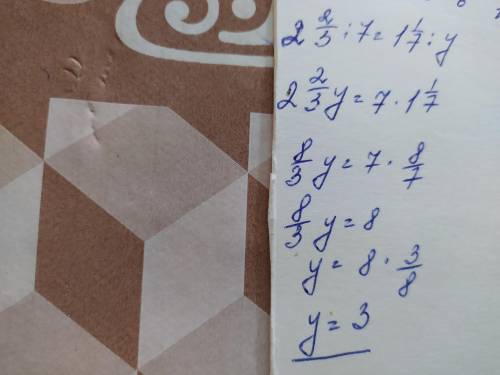 2 2/3 : 7 = 1 1/7 : y
2 2/3 y = 7 · 1 1/7
8/3 y = 7 · 8/7
8/3 y = 8
y = 8 · 3/8
y = 3